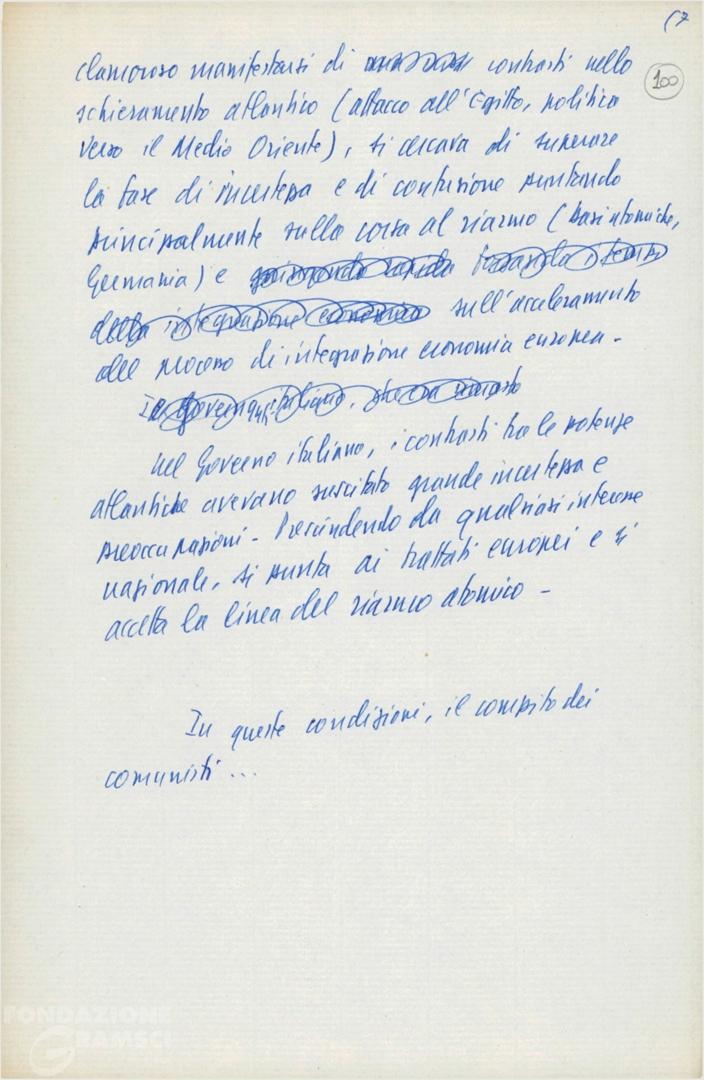 (7
100
clamoroso manifestarsi di contrasti nello
schieramento atlantico (attacco all'Egitto, politica
verso il Medio Oriente), si cercava di superare
la fase di incertezza e di confusione puntando
principalmente sulla corsa al riarmo (basi atomiche,
Germania) e
della integrazione economica sull'acceleramento
del processo di integrazione economia europea -
Il Governo italiano, che era rimasto
Nel Governo italiano, i contrasti tra le potenze
atlantiche avevano suscitato grande incertezza e
preoccupazioni - Prescindendo da qualsiasi interesse
nazionale, si punta ai trattati europei e si
accetta la linea del riarmo atomico -
In queste condizioni, il compito dei
comunisti ...
FONDAZIONE
GRAMSCI